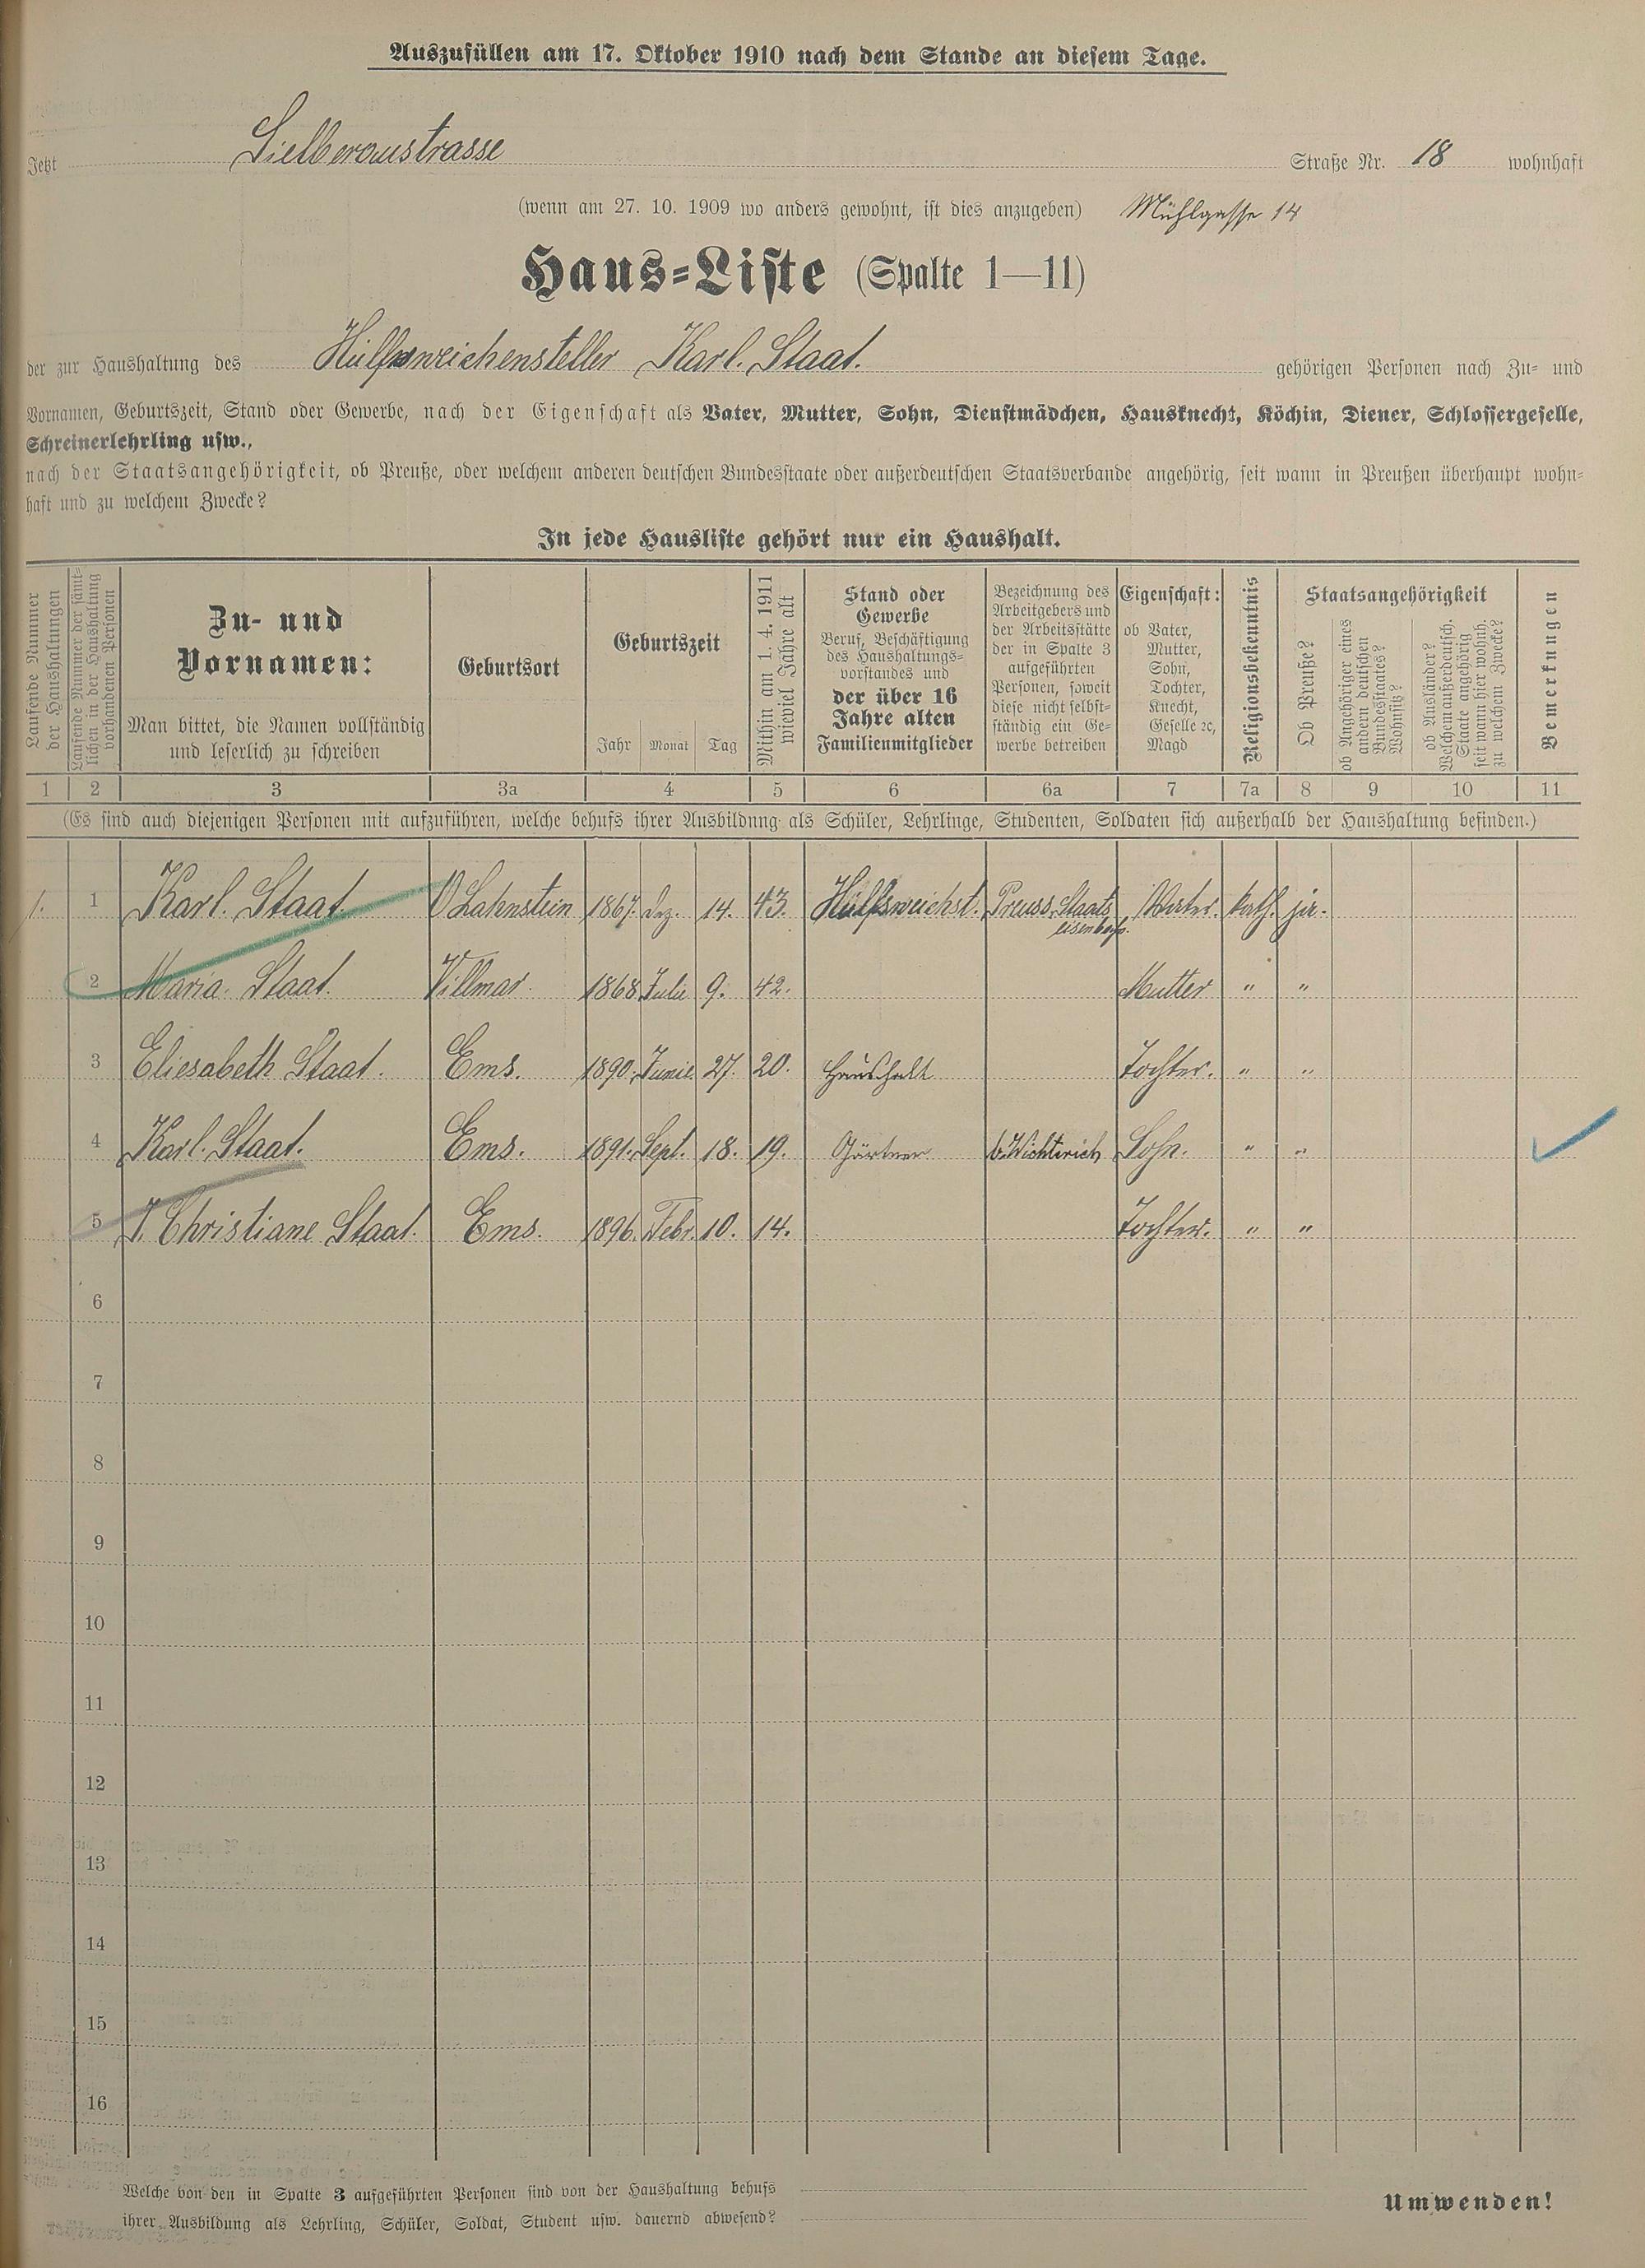 Auszufüllen am 17. Oktober 1910 nach dem Stande an diesem Tage.
Jetzt Silberaustrasse Straße Nr. 18 wohnhaft
(wenn am 27. 10. 1909 wo anders gewohnt, ist dies anzugeben) Mühlgasse 14
Haus-Liste (Spalte 1—11)
der zur Haushaltung des Hülfsweichensteller Karl. Staat. gehörigen Personen nach Zu- und
Vornamen, Geburtszeit, Stand oder Gewerbe, nach der Eigenschaft als Vater, Mutter, Sohn, Dienstmädchen, Hausknecht, Köchin, Diener, Schlossergeselle,
Schreinerlehrling usw.,
nach der Staatsangehörigkeit, ob Preuße, oder welchem anderen deutschen Bundesstaate oder außerdeutschen Staatsverbande angehörig, seit wann in Preußen überhaupt wohn-
haft und zu welchem Zwecke?
In jede Hausliste gehört nur ein Haushalt.
Laufende Nummer
der Haushaltungen
Laufende Nummer der sämt-
lichen in der Haushaltung
vorhandenen Personen
Zu- und
Vornamen:
Man bittet, die Namen vollständig
und leserlich zu schreiben
Geburtsort
Geburtszeit
Jahr Monat Tag
Mithin am 1. 4. 1911
wieviel Jahre alt
Stand oder
Gewerbe
Beruf, Beschäftigung
des Haushaltungs-
vorstandes und
der über 16
Jahre alten
Familienmitglieder
Bezeichnung des
Arbeitgebers und
der Arbeitsstätte
der in Spalte 3
aufgeführten
Personen, soweit
diese nicht selbst-
ständig ein Ge-
werbe betreiben
Eigenschaft:
ob Vater,
Mutter,
Sohn,
Tochter,
Knecht,
Geselle ec,
Magd
Religionsbekenntnis
Staatsangehörigkeit
Ob Preuße?
ob Angehöriger eines
andern deutschen
Bundesstaates?
Wohnsitz?
ob Ausländer?
Welchem außerdeutsch.
Staate angehörig
seit wann hier wohnh.
zu welchem Zwecke?
Bemerkungen
1 2 3 3a 4 5 6 6a 7 7a 8 9 10 11
(Es sind auch diejenigen Personen mit aufzuführen, welche behufs ihrer Ausbildung als Schüler, Lehrlinge, Studenten, Soldaten sich außerhalb der Haushaltung befinden.)
1. 1 Karl. Staat. O Lahnstein 1867. Dez. 14. 43. Hülfsweichst. Preuss. Staats eisenbah. Vater. kath. ja.
2 Maria. Staat. Villmar. 1868 Julie 9. 42. Mutter " "
3 Eliesabeth Staat. Ems. 1890. Junie 27. 20. Haushalt Tochter. " "
4 Karl. Staat. Ems. 1891. Sept. 18. 19. Gärtner b. Wichterich Sohn. " "
5 J. Christiane Staat. Ems. 1896. Febr. 10. 14. Tochter. " "
6
7
8
9
10
11
12
13
14
15
16
Welche von den in Spalte 3 aufgeführten Personen sind von der Haushaltung behufs
ihrer Ausbildung als Lehrling, Schüler, Soldat, Student usw. dauernd abwesend?
Umwenden!